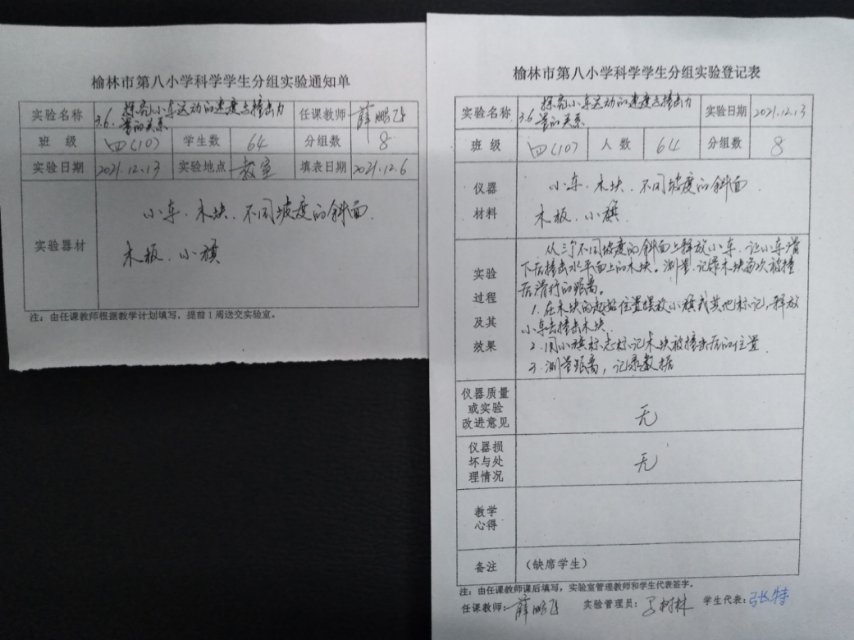 榆林市第八小学科学学生分组实验通知单
实验名称 3.6. 探究小车运动的速度与撞击力量的关系 任课教师 薛鹏飞
班 级 四(10) 学生数 64 分组数 8
实验日期 2021.12.13 实验地点 教室 填表日期 2021.12.6
实验器材
小车、木块、不同坡度的斜面
木板、小旗
注：由任课教师根据教学计划填写，提前1周送交实验室。
榆林市第八小学科学学生分组实验登记表
实验名称 3.6. 探究小车运动的速度与撞击力量的关系 实验日期 2021.12.13
班 级 四(10) 人 数 64 分组数 8
仪器材料
小车、木块、不同坡度的斜面
木板、小旗
实验过程及其效果
从三个不同坡度的斜面上释放小车，让小车滑
下后撞击水平面上的木块。测量、记录木块每次被撞
后滑行的距离。
1.在木块的起始位置摆放小旗或其他标记，释放
小车去撞击木块
2.用小旗标志标记木块被撞击后的位置
3.测量距离，记录数据
仪器质量或实验改进意见 无
仪器损坏与处理情况 无
教学心得
备注 (缺席学生)
注：由任课教师课后填写，实验室管理教师和学生代表签字。
任课教师：薛鹏飞 实验管理员： 树林 学生代表：张特